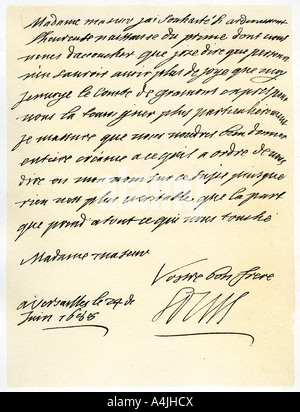 Madame ma sœur j'ai souhaitté si ardemment
l'heureuse naissance du prince dont vous
venez d'accoucher que j'ose dire que personne
n'en sauroit avoir plus de joye que moy
j'envoye le Comte de gramont exprès pour
vous la tesmoigner plus particulièrement
je m'assure que vous voudrez bien donner
entière créance a ce qu'il a ordre de vous
dire en mon nom sur ce sujet puisque
rien n'est plus véritable que la part
que je prend a tout ce qui vous touche
Madame ma sœur
Vostre bon frere
Louis
a Versailles le 24 de
Juin 1688
alamy
A4JHCX